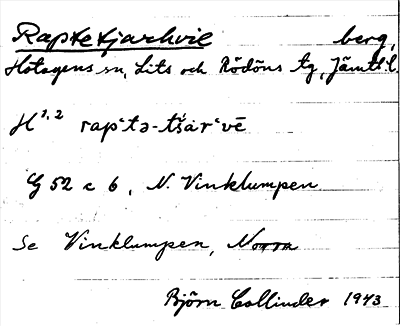 Raptetjarhvie berg,
Hotagens sn, Lits och Rödöns tg, Jämtl. l.
H¹,² rap‘tə-tšár‘vē
G 52 c 6, N. Vinklumpen
Se Vinklumpen, Norra
Björn Collinder 1943